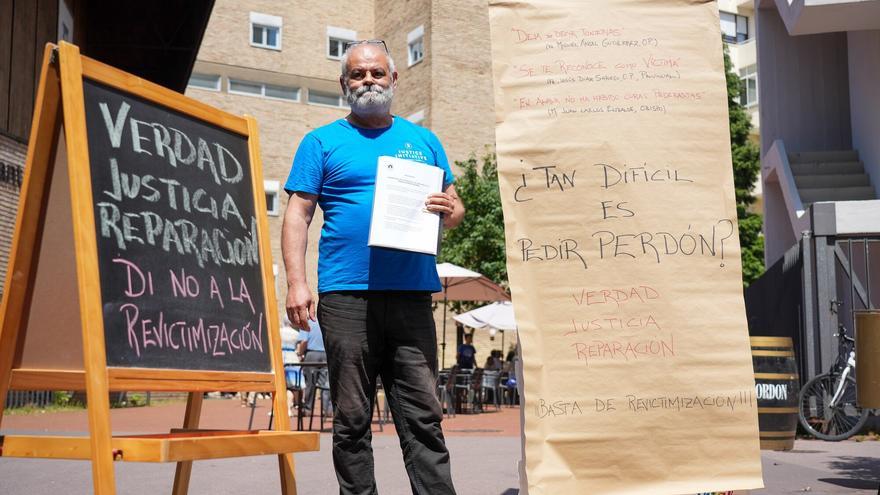 VERDAD
JUSTICIA
REPARACIÓN
DI NO A LA
REVICTIMIZACIÓN
JUSTICE
INITIATIVE
"DEJA DE DECIR TONTERÍAS"
"SE TE RECONOCE COMO VÍCTIMA"
"EN ARABA NO HA HABIDO CURAS PEDERASTAS"
(M JUAN CARLOS ELIZALDE, OBISPO)
¿TAN DIFÍCIL
ES
PEDIR PERDÓN?
VERDAD
JUSTICIA
REPARACIÓN
¡BASTA DE REVICTIMIZACIÓN!!!
GORDON